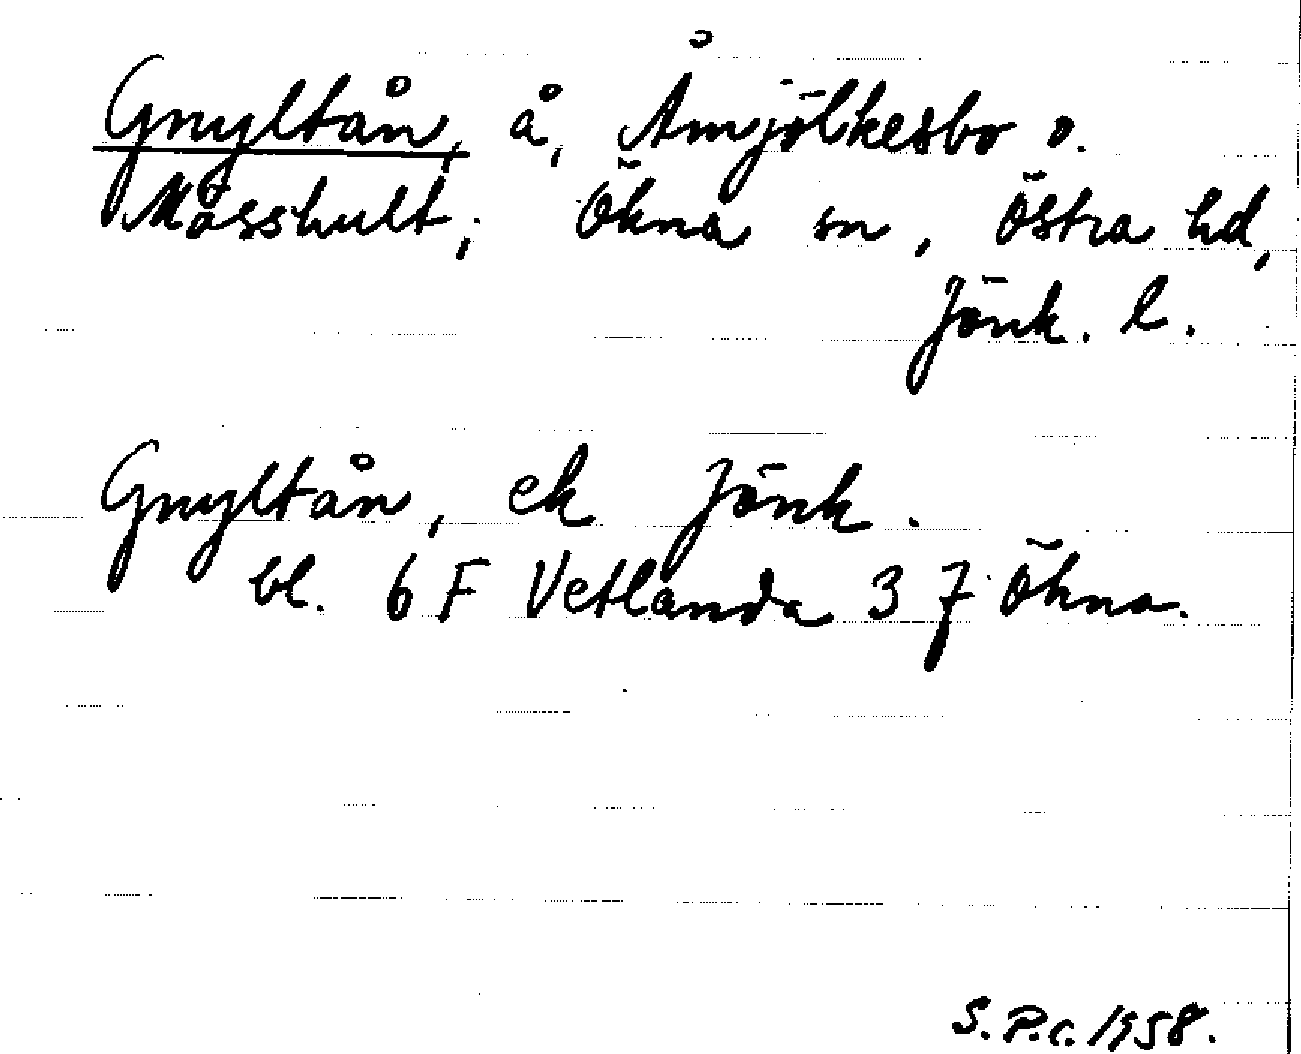 Gnyltån, å, Åmjölkesbo o.
Mosshult, Ökna sn, Östra hd,
Jönk. l.
Gnyltån, ek Jönk.
bl. 6 F Vetlanda 3 7 Ökna.
S.P.C. 1958.